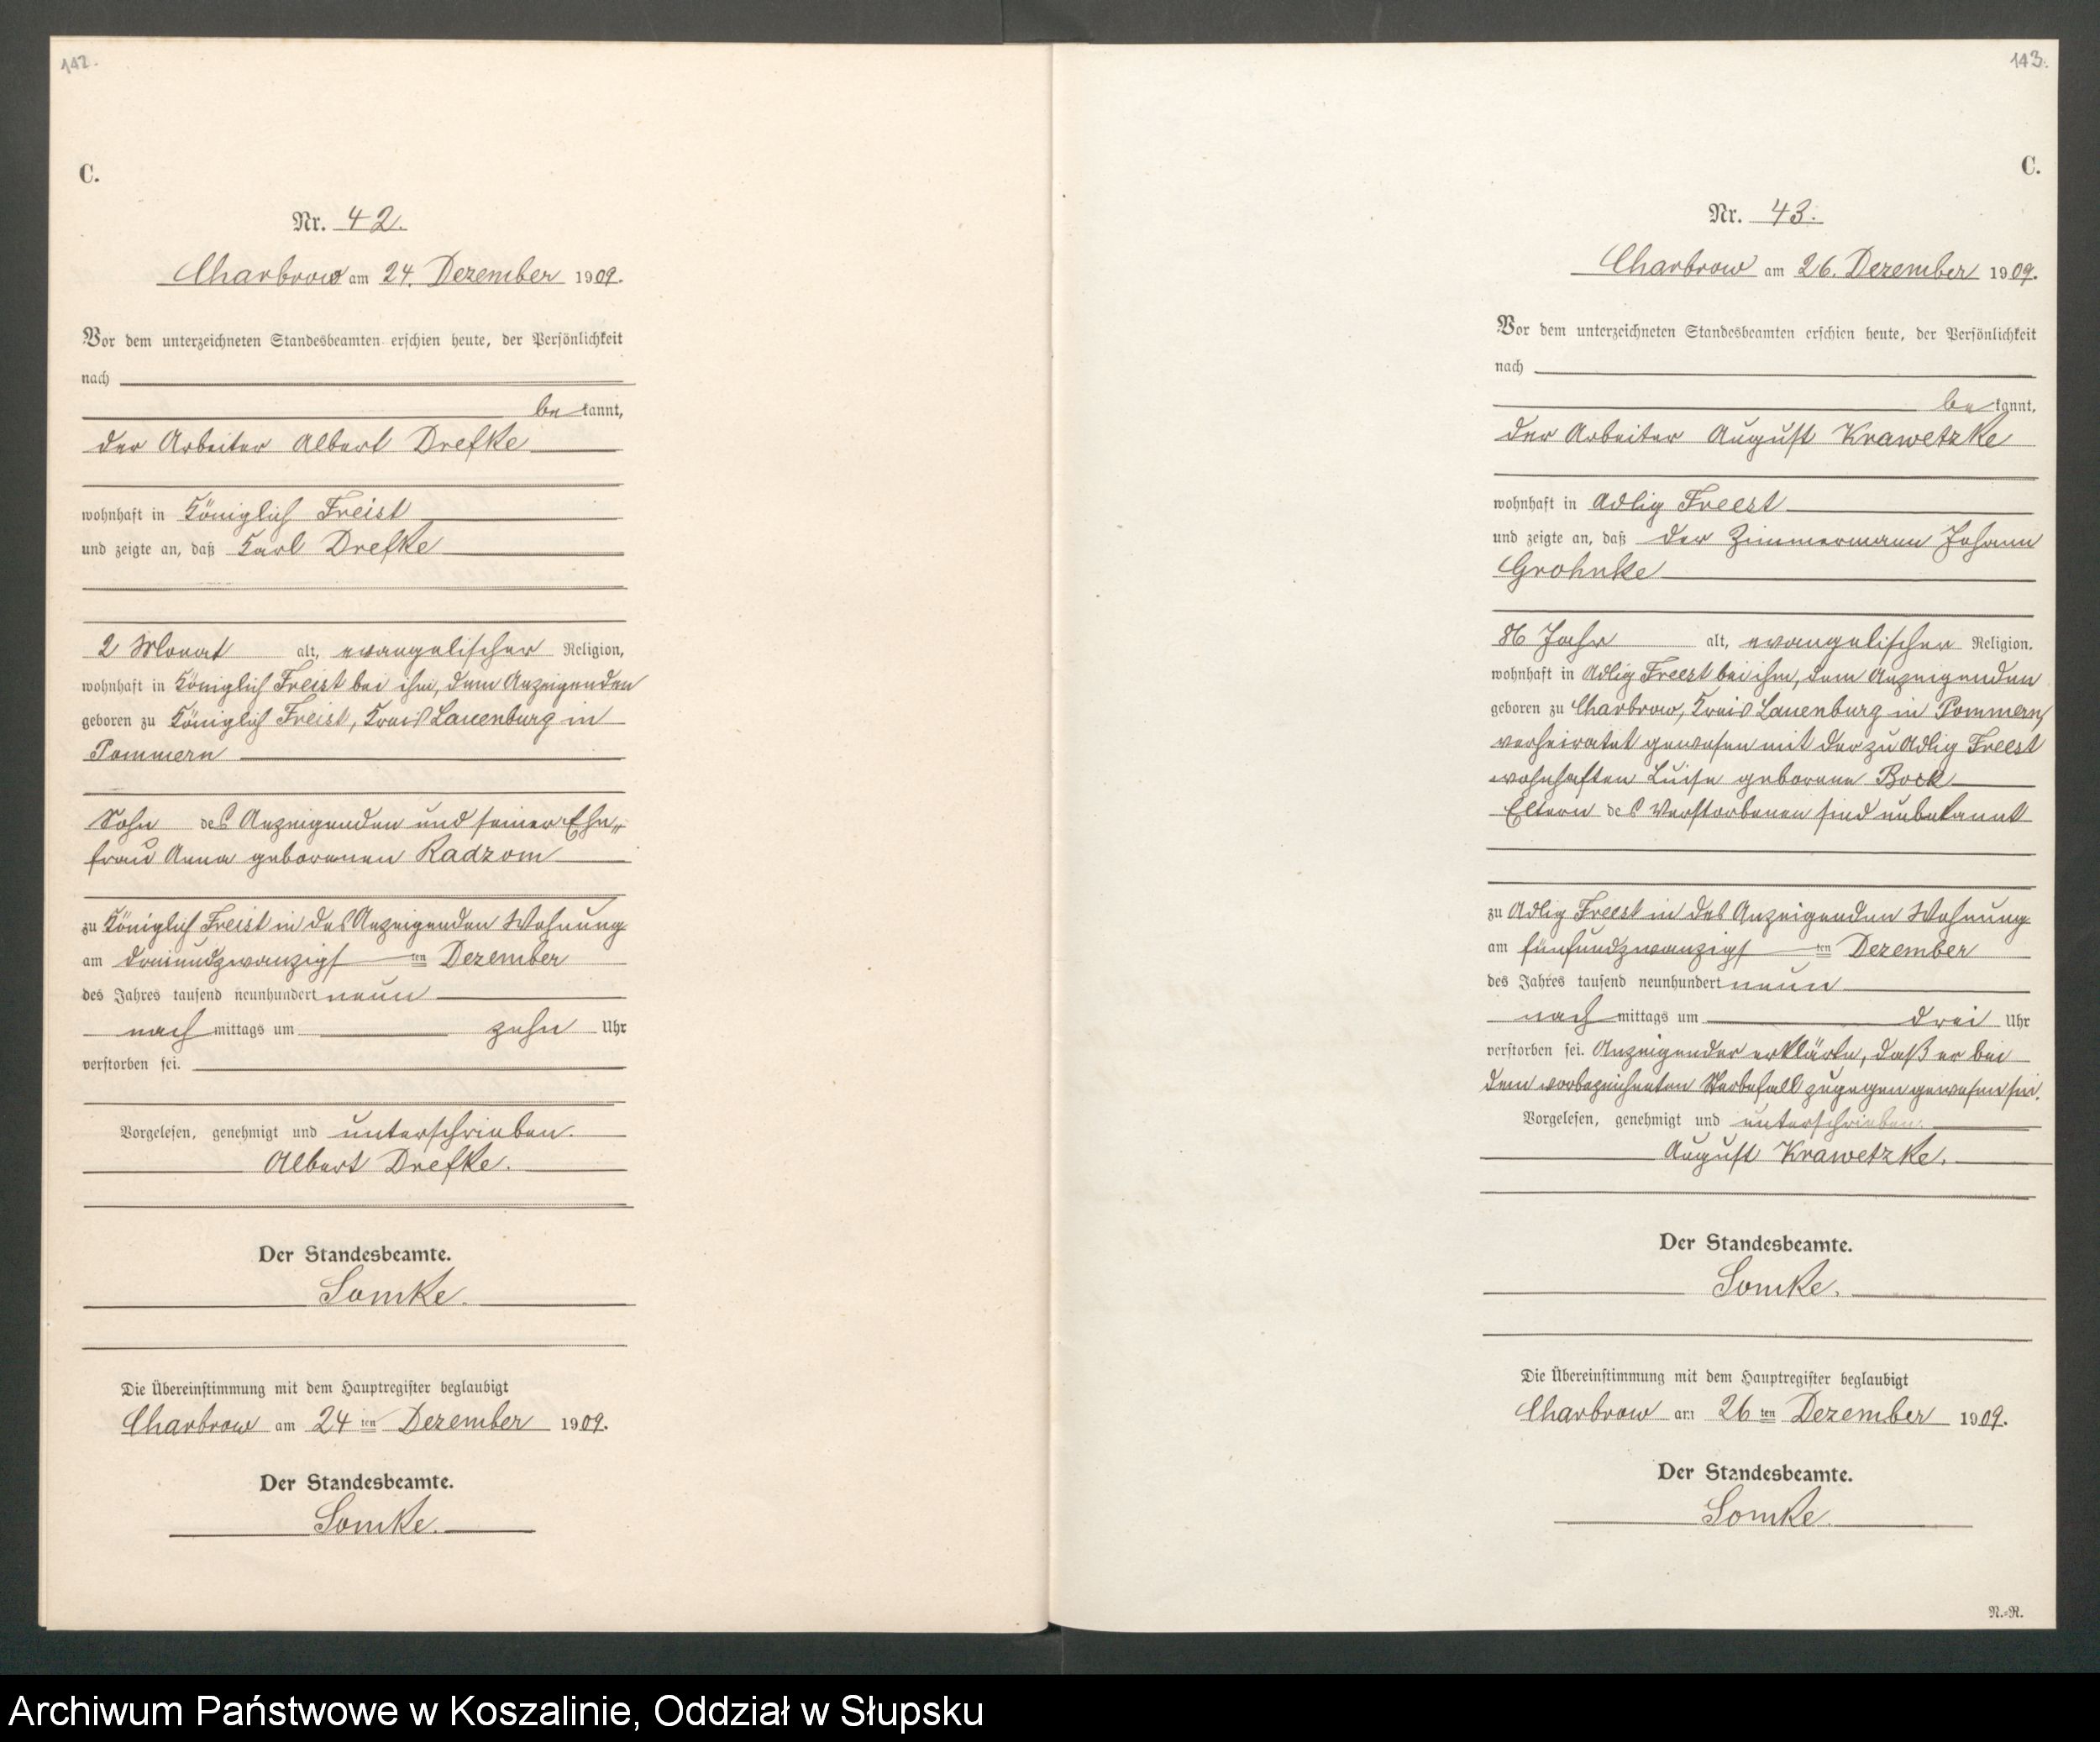 142.
C.
Nr. 42.
Charbrow am 24. Dezember 1909.
Vor dem unterzeichneten Standesbeamten erschien heute, der Persönlichkeit
nach
be kannt,
der Arbeiter Albert Drefke
wohnhaft in Königlich Freist
und zeigte an, daß Karl Drefke
2 Monat alt, evangelischer Religion,
wohnhaft in Königlich Freist bei ihm, dem Anzeigenden
geboren zu Königlich Freist, Kreis Lauenburg in
Pommern
Sohn des Anzeigenden und seiner Ehe„
frau Anna geborenen Radzom
zu Königlich Freist in des Anzeigenden Wohnung
am dreiundzwanzigsten Dezember
des Jahres tausend neunhundert neun
nachmittags um zehn Uhr
verstorben sei.
Vorgelesen, genehmigt und unterschrieben.
Albert Drefke.
Der Standesbeamte.
Somke.
Die Übereinstimmung mit dem Hauptregister beglaubigt
Charbrow am 24ten Dezember 1909.
Der Standesbeamte.
Somke.
143.
C.
Nr. 43.
Charbrow am 26. Dezember 1909.
Vor dem unterzeichneten Standesbeamten erschien heute, der Persönlichkeit
nach
be kannt,
der Arbeiter August Krawetzke
wohnhaft in Adlig Freest
und zeigte an, daß der Zimmermann Johann
Grohnke
86 Jahr alt, evangelischer Religion.
wohnhaft in Adlig Freest bei ihm, dem Anzeigenden
geboren zu Charbrow, Kreis Lauenburg in Pommern,
verheiratet gewesen mit der zu Adlig Freest
wohnhaften Luise geborene Bock
Eltern des Verstorbenen sind unbekannt
zu Adlig Freest in des Anzeigenden Wohnung
am fünfundzwanzigsten Dezember
des Jahres tausend neunhundert neun
nachmittags um drei Uhr
verstorben sei. Anzeigender erklärte, daß er bei
dem vorbezeichneten Sterbefall zugegen gewesen sei.
Vorgelesen, genehmigt und unterschrieben.
August Krawetzke.
Der Standesbeamte.
Somke.
Die Übereinstimmung mit dem Hauptregister beglaubigt
Charbrow am 26ten Dezember 1909.
Der Standesbeamte.
Somke.
N.=R.
Archiwum Państwowe w Koszalinie, Oddział w Słupsku